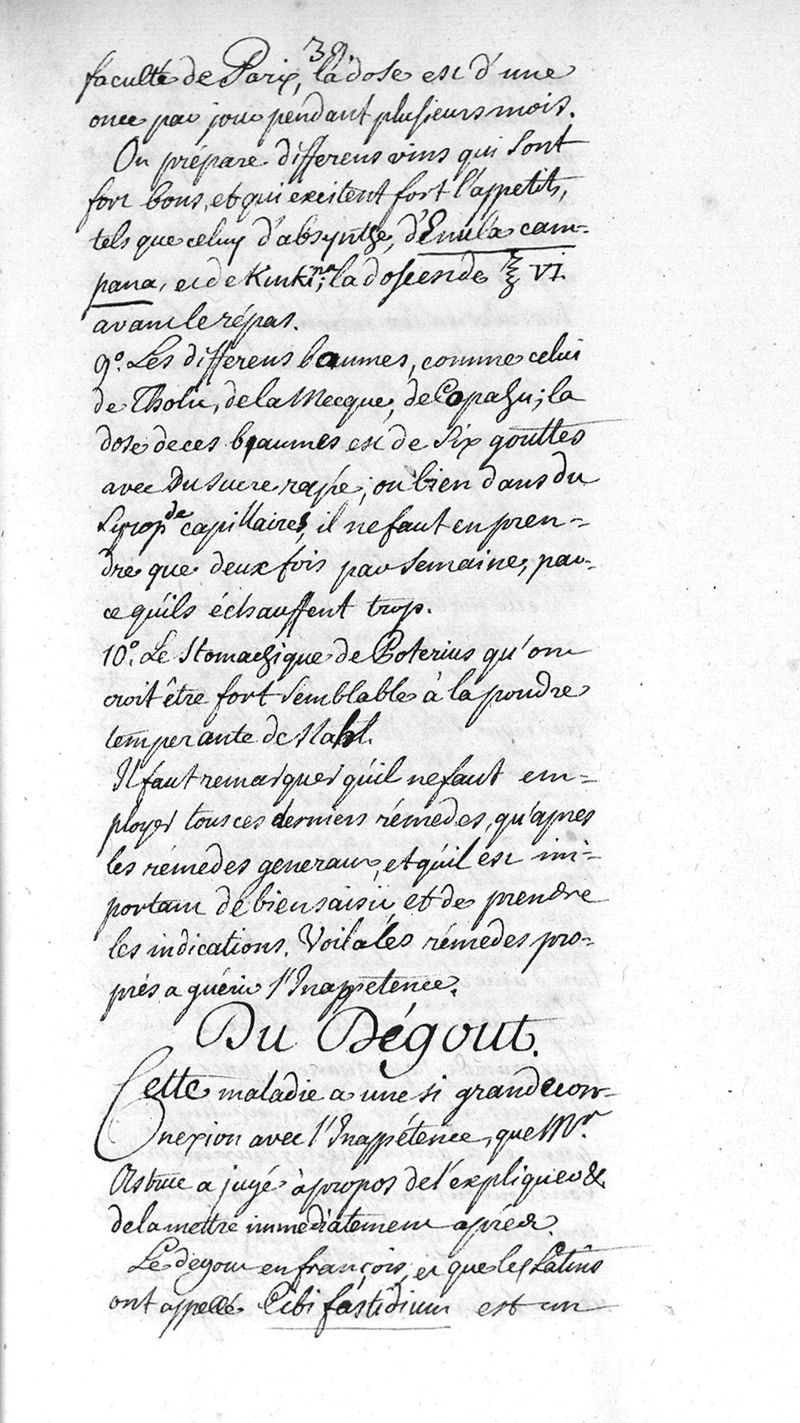 39.
faculté de Paris, la dose est d'une
once par jour pendant plusieurs mois.
On prépare differens vins qui sont
fort bons, et qui excitent fort l'appetits,
tels que celuy d'absynthe, d'Enula cam-
pana, et de Kinkina; la dose en de ℥ VI.
avant le répas.
9º. Les differens baumes, comme celui
de Tholu, de la Mecque, de Copahu; la
dose de ces baumes est de six gouttes
avec du sucre rapé; ou bien dans du
Sirop de capillaires, il ne faut en pren=
dre que deux fois par semaine, par-
ce quils échauffent trop.
10º. Le Stomachique de Poterius qu'on
croit être fort semblable à la poudre
temperante de Stahl.
Il faut remarquer qu'il ne faut em=
ployer tous ces derniers rémedes, qu'apres
les rémedes generaux, et qu'il est im=
portant de bien saisir et de prendre
les indications. Voila les rémedes pro=
prés a guérir l'Inappetence.
Du Dégout.
Cette maladie a une si grande con-
nexion avec l'Inappétence, que Mr.
Astruc a jugé à propos de l'expliquer &
de la mettre immédiatement aprés.
Le dégout en françois, et que les Latins
ont appellé Cibi fastidium est un